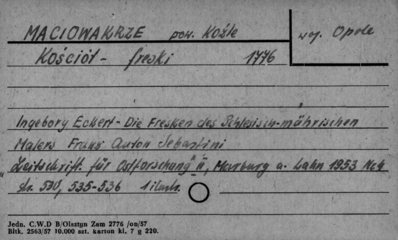 MACIOWAKRZE pow. Koźle woj. Opole
Kościół - freski 1776
Ingeborg Eckert - Die Fresken des Schlesisch-mährischen
Malers Franz Anton Sebastini
"Zeitschrift für Ostforschung" II, Marburg a. Lahn 1953 No 4
str. 530, 535-536 1 ilustr.
Jedn. C.W.D B/Olsztyn Zam 2776 /on/57
Bltk. 2563/57 10.000 szt. karton kl. 7 g 220.